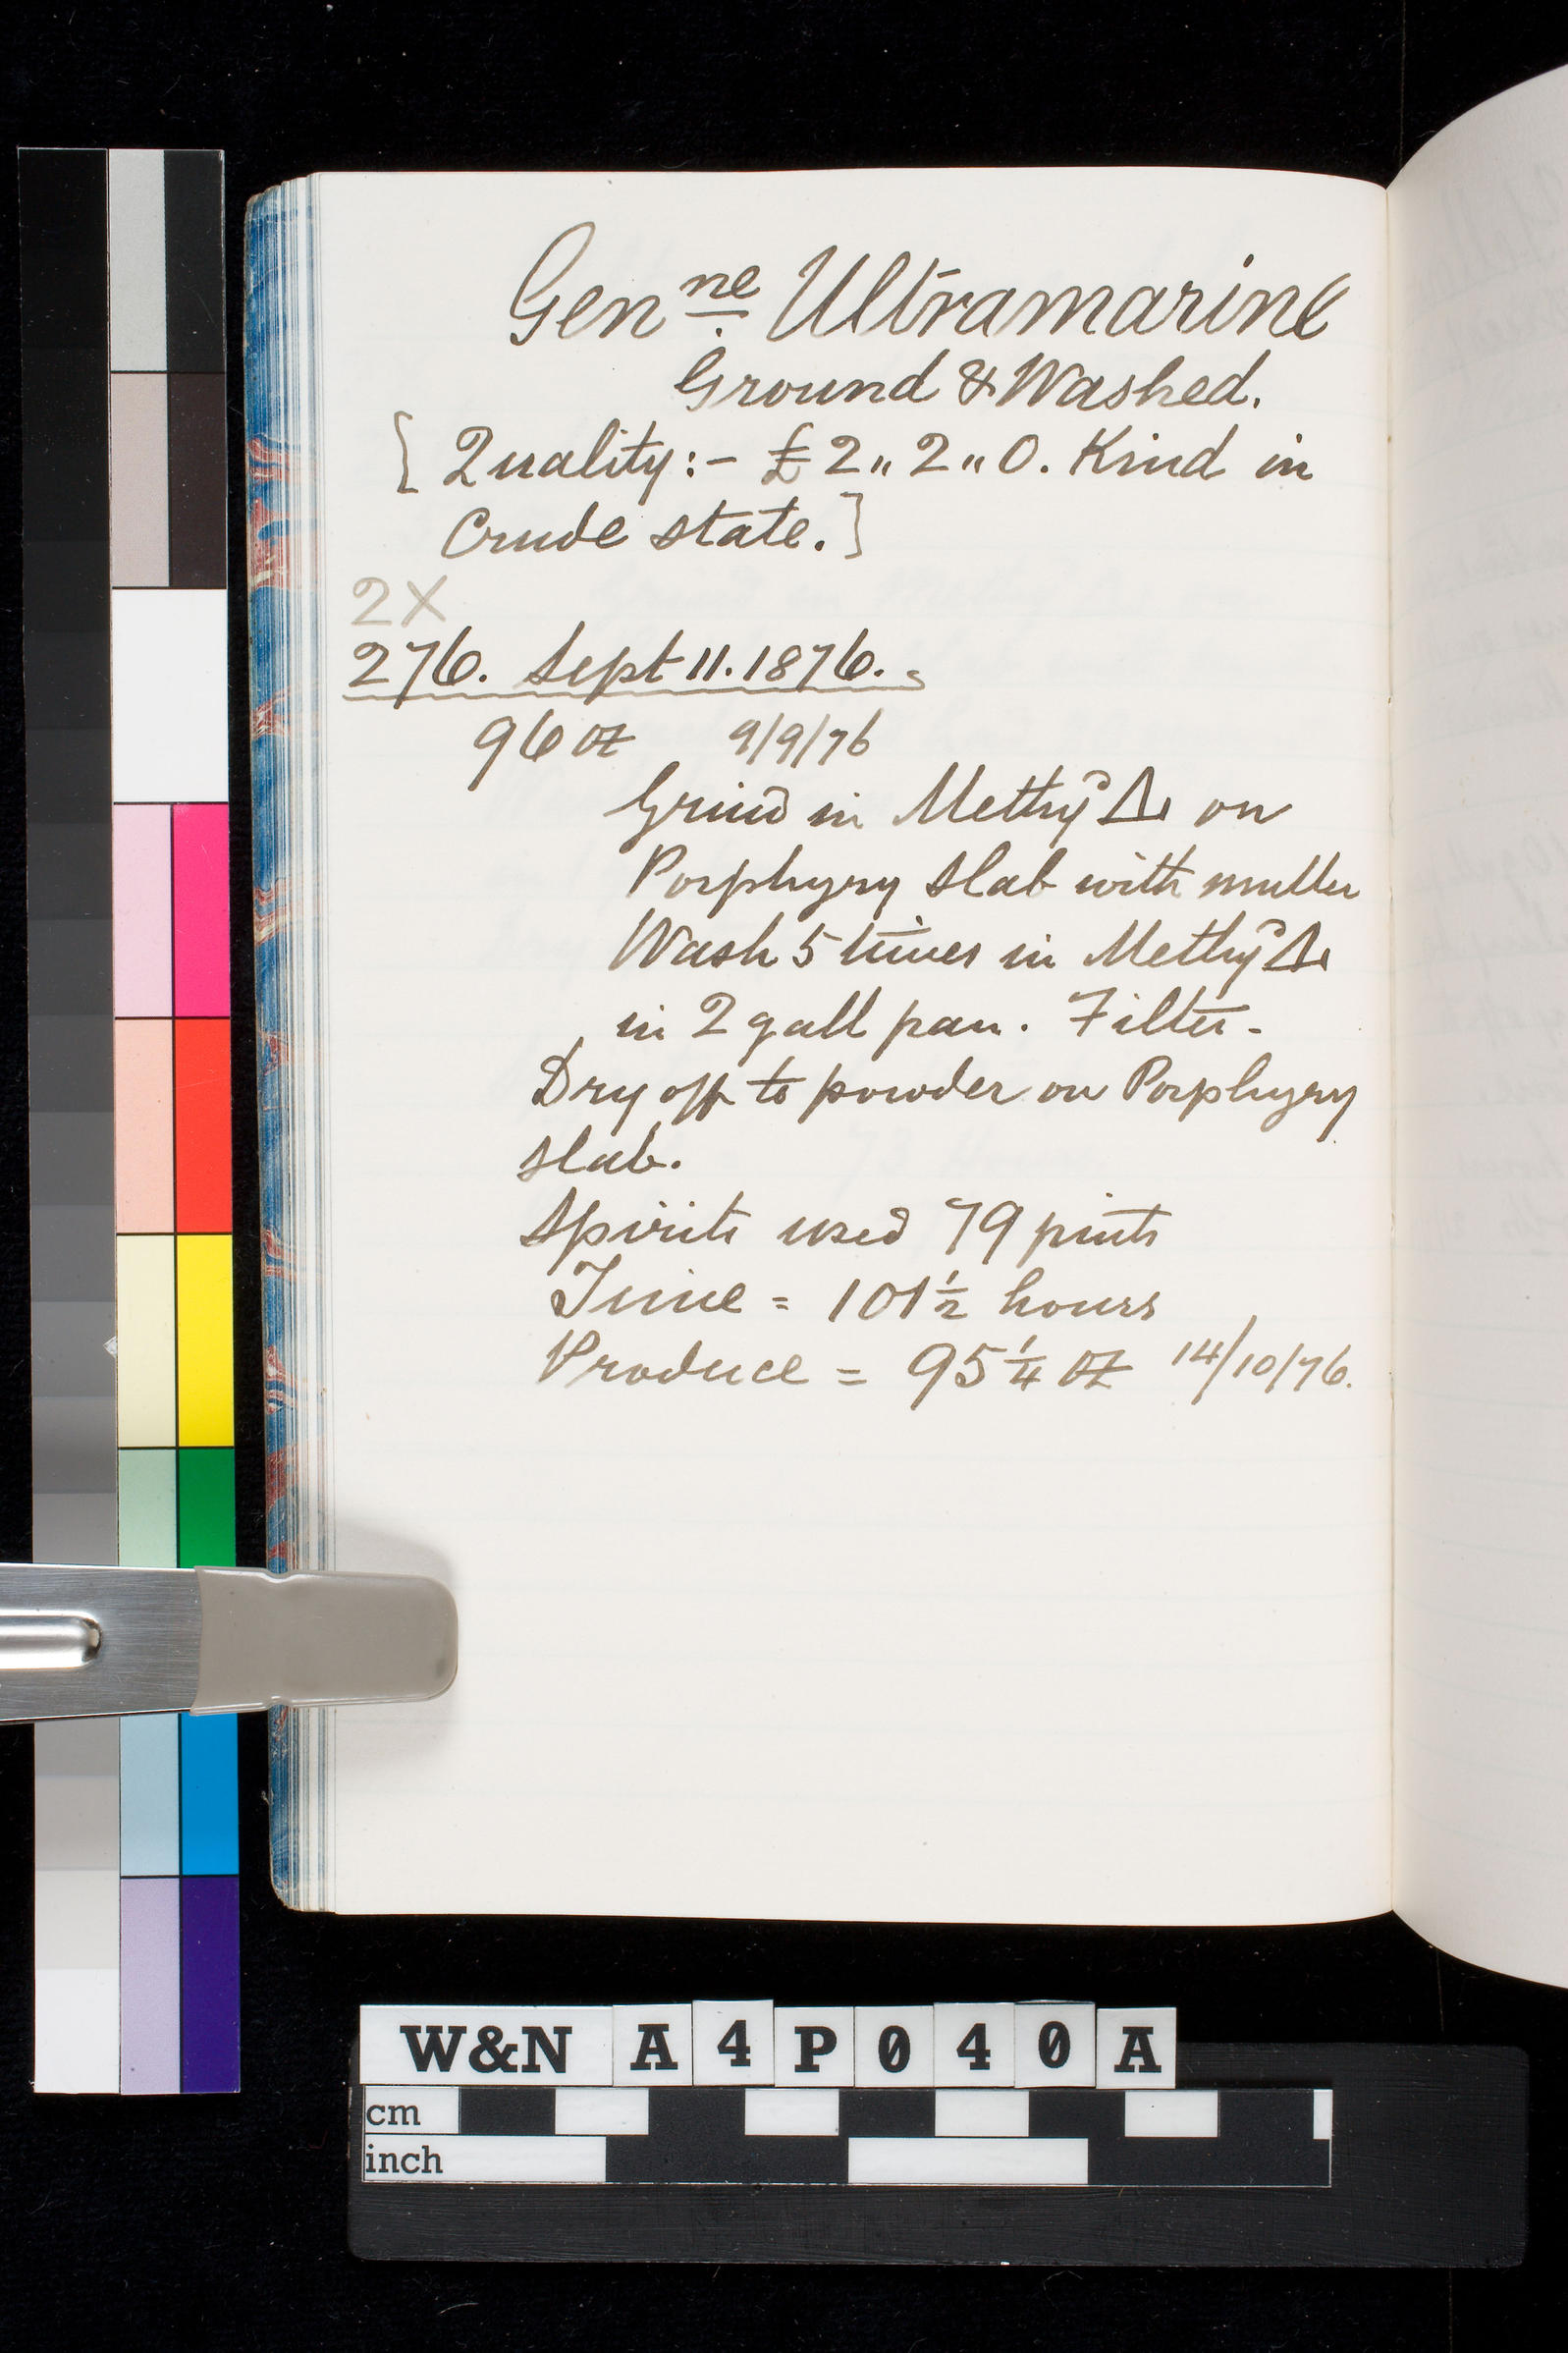 Genne Ultramarine
Ground & Washed.
[Quality:- £2,,2,,0. Kind in
Crude state.]
2X
276. Sept 11. 1876.
96 oz 9/9/76
Grind in Methyd Δs on
Porphyry slab with muller
Wash 5 times in Methyd Δs
in 2 gall pan. Filter.
Dry off to powder on Porphyry
slab.
Spirits used 79 pints
Time = 101½ hours
Produce = 95¼ oz 14/10/76.
W&N A4P040A
cm
inch